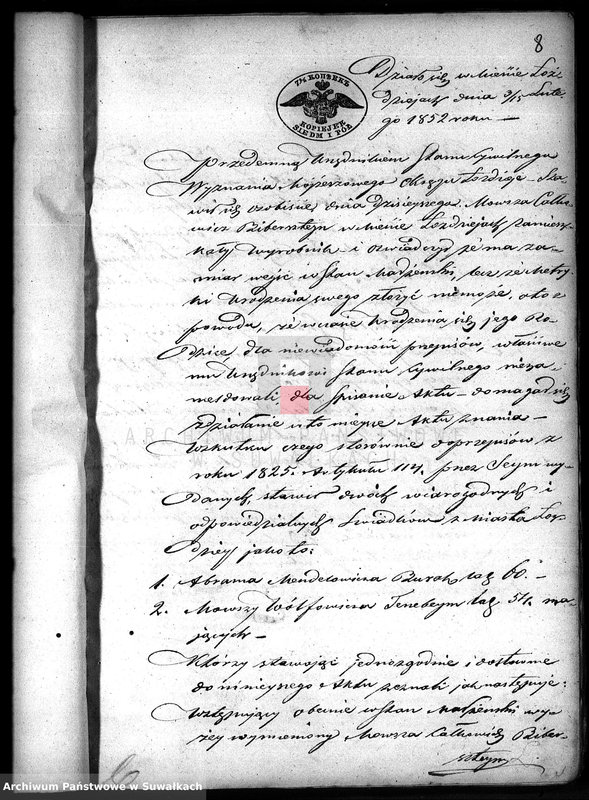 8
7½ КОПѢЕКЪ
KOPIEJEK
SIEDM I PÓŁ
Działo się w Mieście Łoź-
dziejach dnia 3/15 Lute-
go 1852 roku —
Przedemną Urzędnikiem Stanu Cywilnego
Wyznania Mojżeszowego Okręgu Łoździeje – Sta-
wił się osobiście dnia dzisiejszego Mowsza Calko-
wicz Biberszteyn w Mieście Łoździejach zamiesz-
kały Wyrobnik – i oświadczył że ma za-
miar wejść w Stan Małżeński, lecz że Metry-
ki Urodzenia swego złożyć nie może, oto z
powodu, że w czasie Urodzenia się jego Ro-
dzice, dla niewiadomości przepisów, właściwe-
mu Urzędnikowi Stanu Cywilnego nieza-
meldowali, dla spisania Aktu – domagał się
zdziałanie w to miejsce Aktu znania –
Wskutku czego stosownie do przepisów z
roku 1825. Artykułu 114. przez Seym wy-
danych, stawił dwóch wiarogodnych i
odpowiedzialnych Świadków z miasta Łoź-
dziey jako to:
1. Abrama Mendelowicza Burak lat 60. –
2. Mowszy Wolfowicza Tenebeym lat 51. ma-
jących –
Którzy stawając jednozgodnie i dosłownie
do niniejszego Aktu zeznali jak następuje:
Wstępujący obecnie w Stan Małżeński wy-
żey wymieniony Mowsza Calkowicz Biber-
szteyn
ARCHIWUM PAŃSTWOWE
W SUWAŁKACH
Archiwum Państwowe w Suwałkach